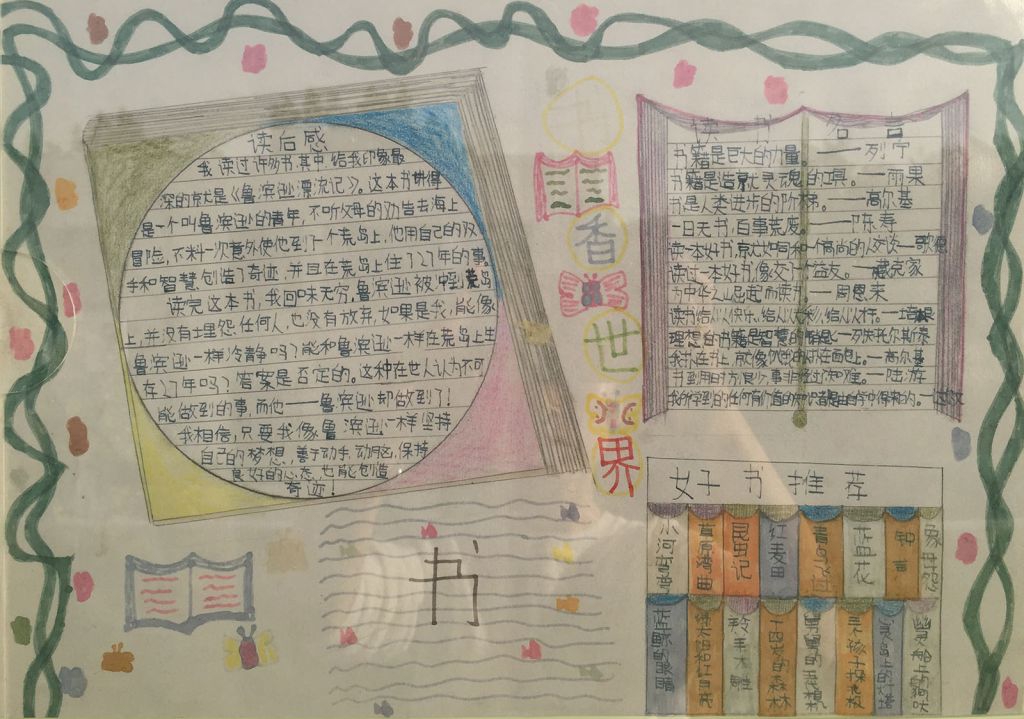 读后感
我读过许多书,其中给我印象最
深的就是《鲁滨逊漂流记》。这本书讲得
是一个叫鲁滨逊的青年,不听父母的劝告去海上
冒险,不料一次意外使他到了一个荒岛上,他用自己的双
手和智慧创造了奇迹,并且在荒岛上住了27年的事。
读完这本书,我回味无穷,鲁滨逊被困到荒岛
上,并没有埋怨任何人,也没有放弃,如果是我,能像
鲁滨逊一样冷静吗?能和鲁滨逊一样在荒岛上生
存27年吗?答案是否定的。这种在世人认为不可
能做到的事,而他——鲁滨逊却做到了!
我相信,只要我像鲁滨逊一样坚持
自己的梦想,善于动手,动脑,保持
良好的心态,也能创造
奇迹!
书
香
世
界
读书名言
书籍是巨大的力量。——列宁
书籍是造就灵魂的工具。——雨果
书是人类进步的阶梯。——高尔基
一日无书,百事荒废。——陈寿
读一本好书,就如同和一个高尚的人交谈—歌德
读过一本好书,像交了一个益友。—臧克家
为中华之崛起而读书。—周恩来
读书给人以快乐、给人以光彩、给人以才行。—培根
理想的书籍是智慧的钥匙。—列夫托尔斯泰
我扑在书上,就像饥饿的人扑在面包上。—高尔基
书到用时方恨少,事非经过不知难。—陆游
我所学到的任何有价值的知识都是由自学中得来的。—达尔文
好书推荐
小河弯弯
草原湾曲
昆田记
红麦田
青鸟飞过
蓝花
钟声
蓝眼的眼睛
十四岁的森林
男孩子探险
灵岛上的灯塔
幽灵船上的狗吠
书